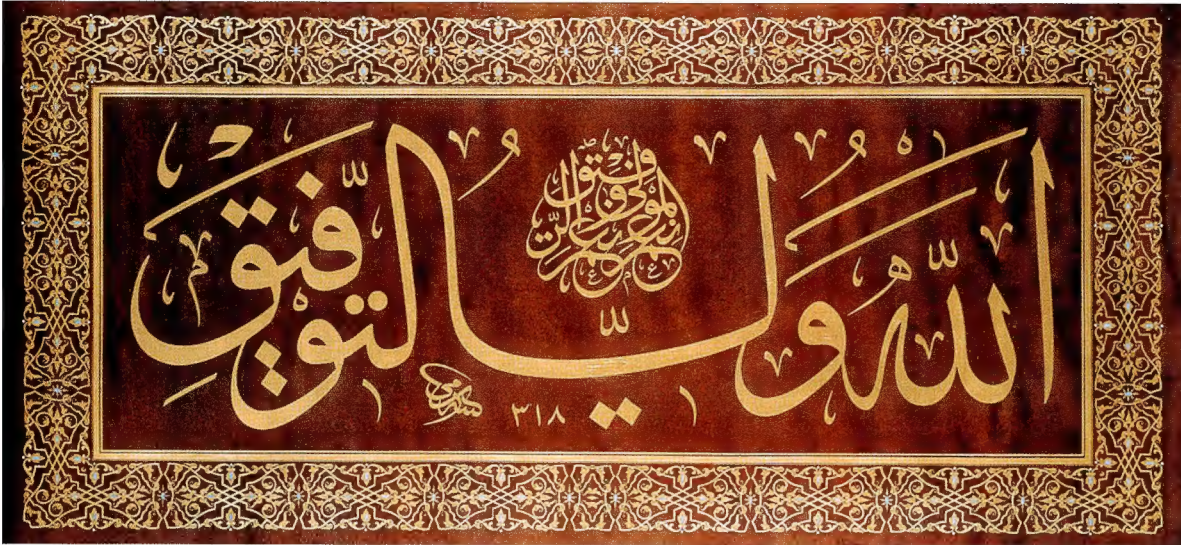 اللّٰهُ وَلِيُّ التَّوْفِيقِ
نعم المولى ونعم الرفيق
٣١٨